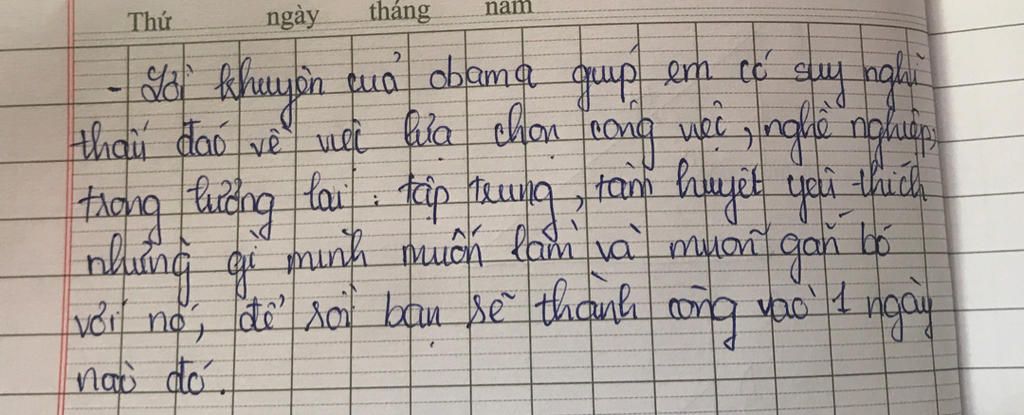 Thứ ngày tháng năm
- Lời khuyên của obama giúp em có suy nghĩ
thấu đáo về việc lựa chọn công việc, nghề nghiệp,
trong tương lai : tập trung, tâm huyết yêu thích
những gì mình muốn làm và muốn gắn bó
với nó, để rồi bạn sẽ thành công vào 1 ngày
nào đó.